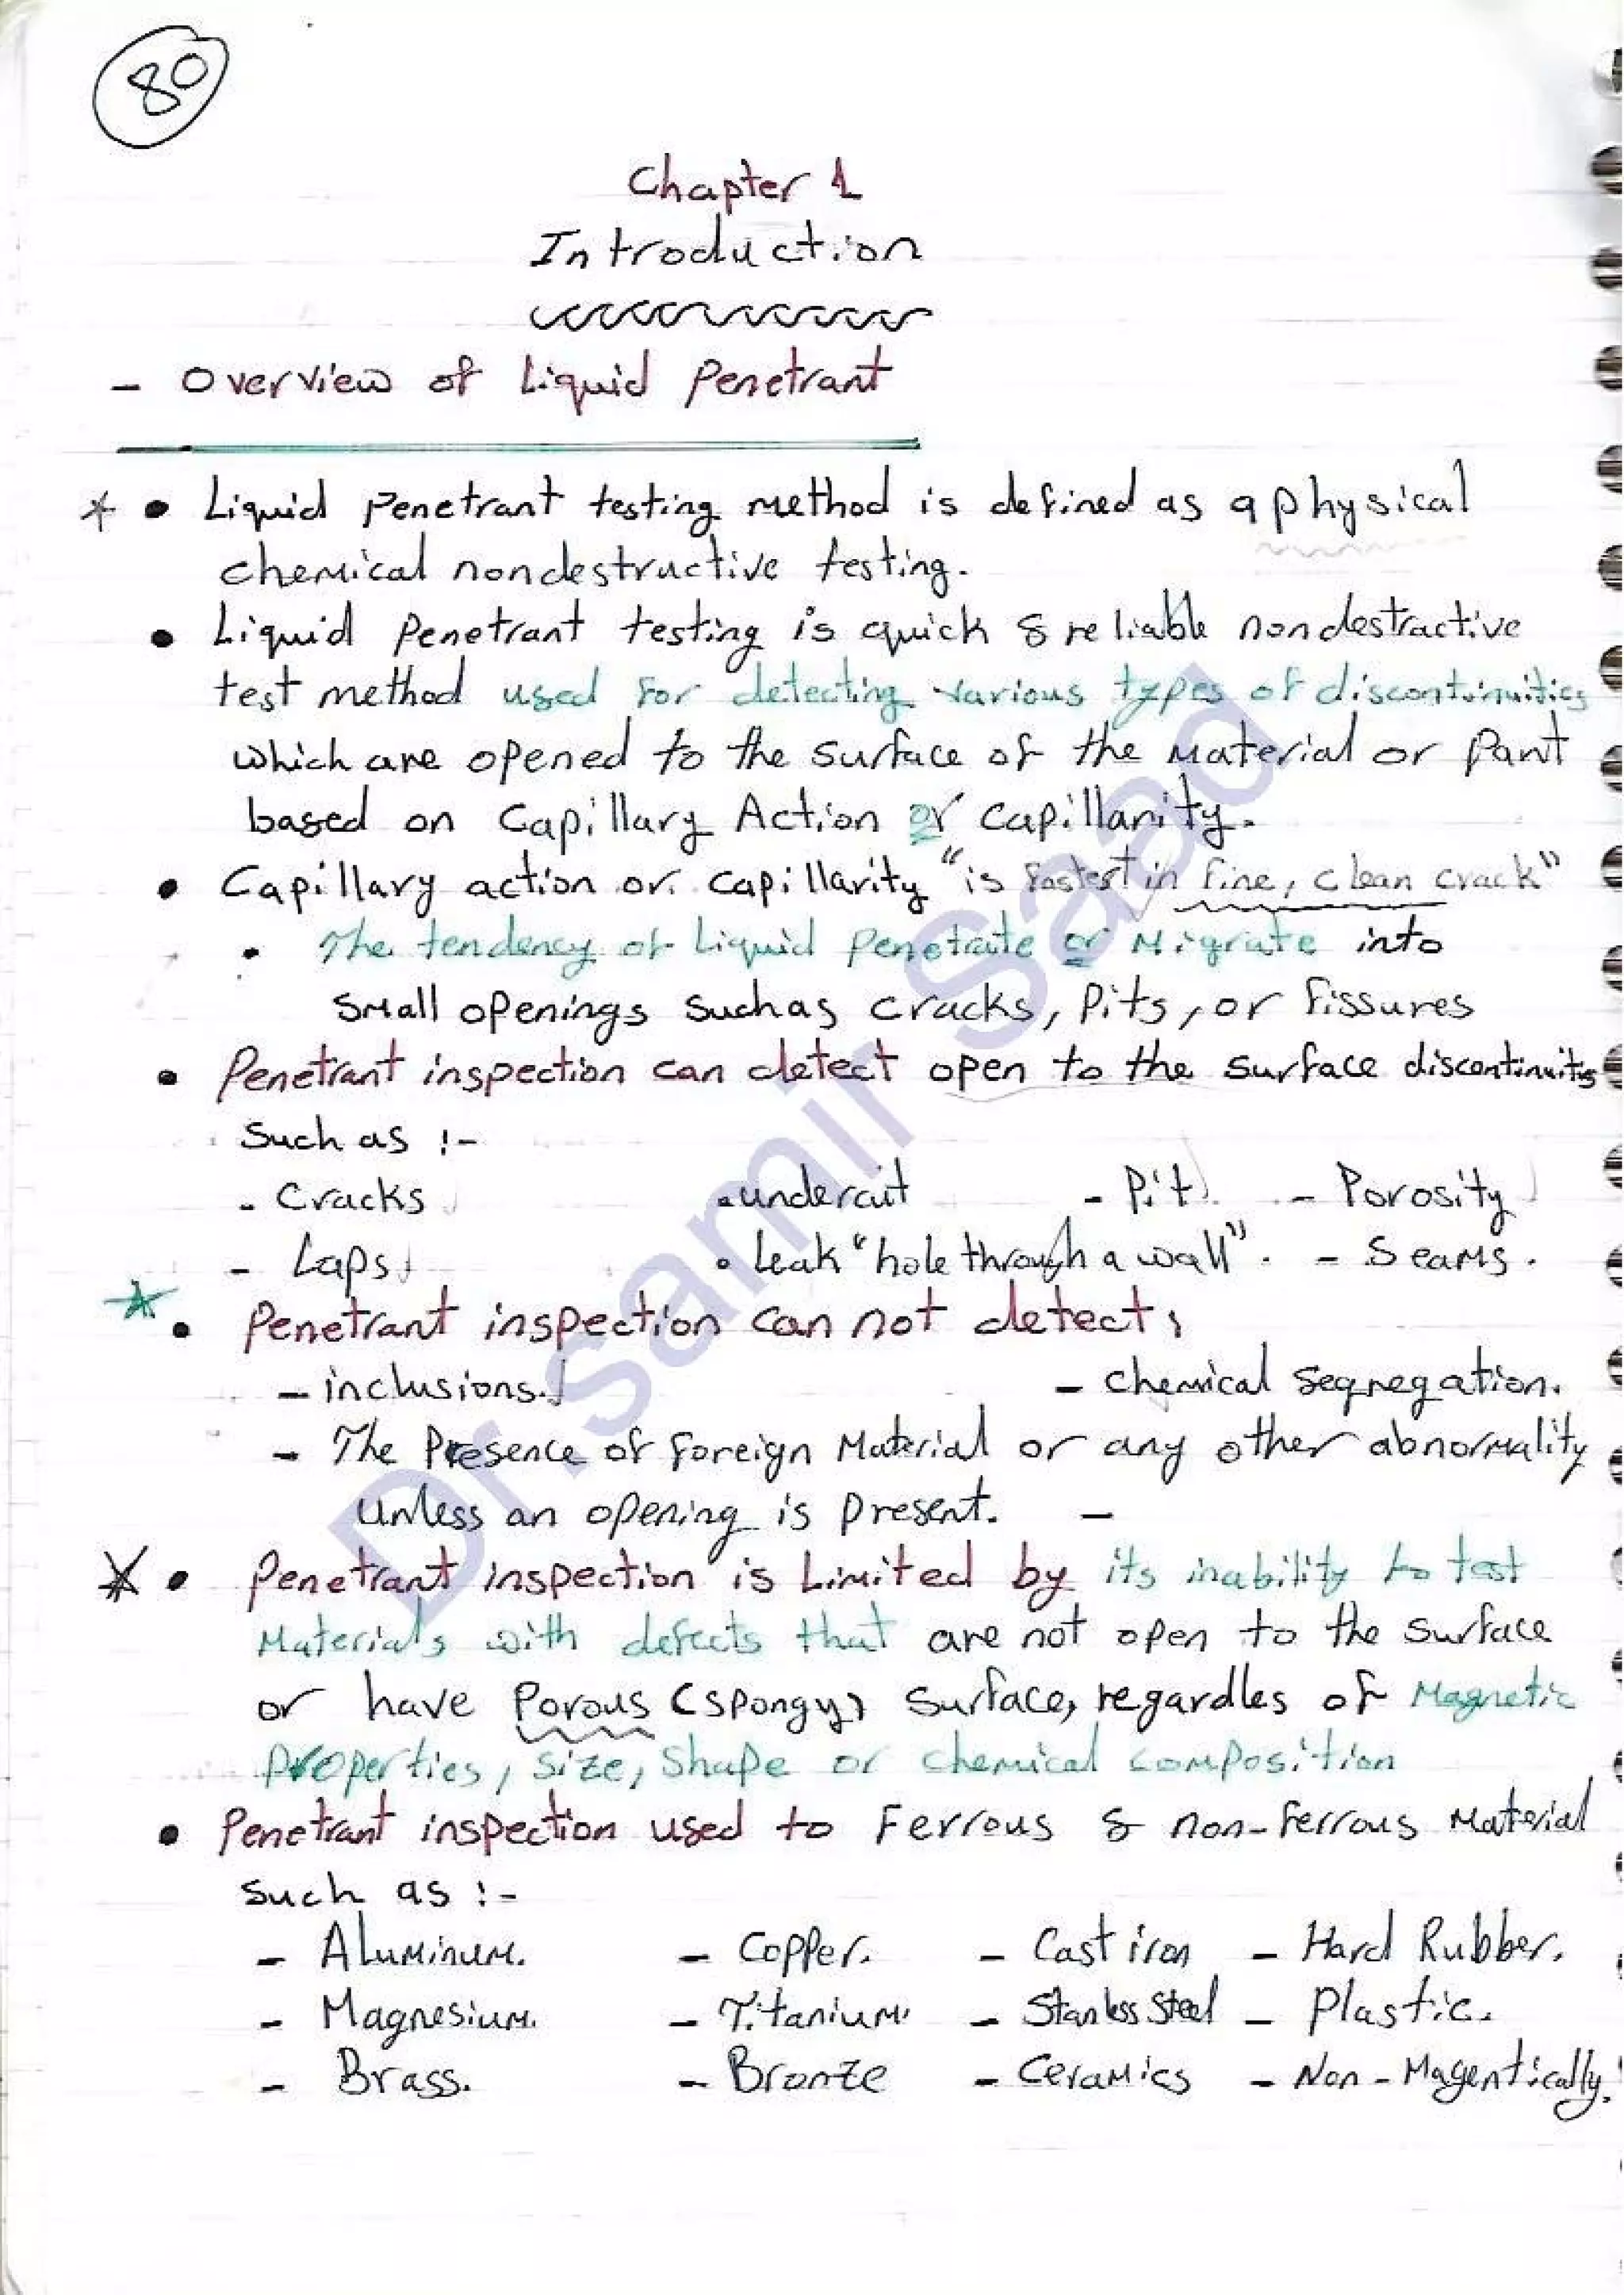 80
Chapter 1
Introduction
- Overview of Liquid Penetrant
* • Liquid Penetrant testing method is defined as a physical
chemical nondestructive testing.
• Liquid Penetrant testing is quick & reliable nondestractive
test method used for detecting various types of discontinuities
which are opened to the surface of the Material or Part
based on Capillary Action or capillarity.
• Capillary action or capillarity "is fastest in fine, clean crack"
• The tendency of Liquid Penetrate or Migrate into
small openings such as cracks, Pits, or fissures
• Penetrant inspection can detect open to the surface discontinuits
Such as :-
- Cracks • undercut - Pit - Porosity
- Laps • leak "hole through a wall". - Seams.
* • Penetrant inspection can not detect:
- inclusions. - chemical segregation.
- The Presence of foreign Material or any other abnormality
Unless an opening is present. -
* • Penetrant inspection is Limited by its inability to test
Materials with defects that are not open to the surface
or have Porous (spongy) surface, regardles of Magnetic
Properties, Size, Shape or chemical composition
• Penetrant inspection used to Ferrous & non-ferrous Material
Such as :-
- Aluminum. - Copper. - Cast iron - Hard Rubber.
- Magnesium. - Titanium. - Stanless Steel - Plastic.
- Brass. - Bronze - Ceramics - Non-Magentically.
Dr.samir Saad